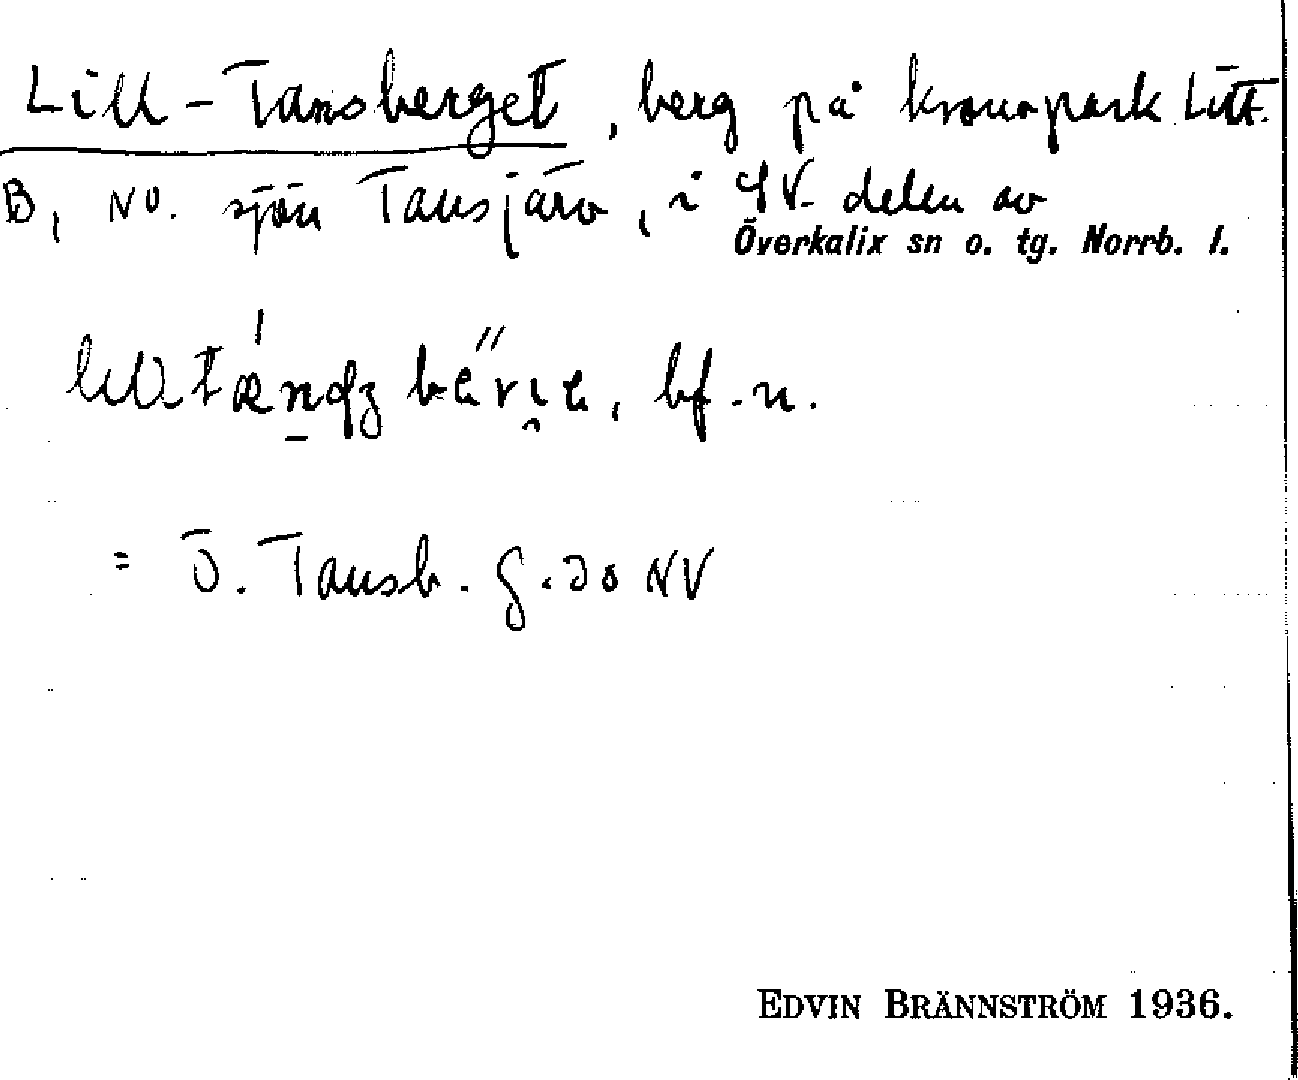 Lill-Tansberget, berg på kronopark Litt.
B, NO. sjön Tansjärv, i SV. delen av
Överkalix sn o. tg. Norrb. l.
bf. n.
= Ö. Tansb. g. 30 NV
EDVIN BRÄNNSTRÖM 1936.